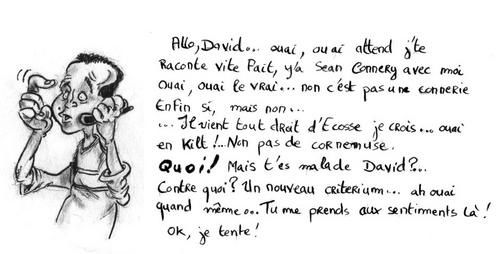 Allo, David... ouai, ouai attend j'te
Raconte vite fait, y'a Sean Connery avec moi
Ouai, ouai le vrai... non c'est pas une connerie
Enfin si, mais non...
... Il vient tout droit d'Ecosse je crois... ouai
en Kilt !... Non pas de cornemuse.
Quoi! Mais t'es malade David?...
Contre quoi? Un nouveau criterium... ah ouai
quand même... Tu me prends aux sentiments là!
OK, je tente!